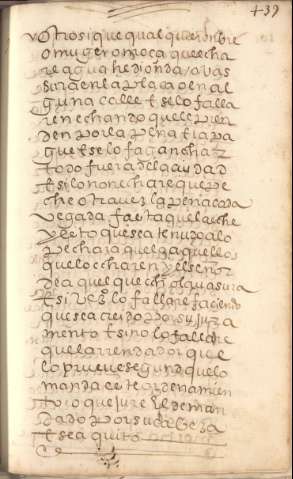 439
otrosi que qual quier onbre
o muger o moça que echa
re agua hedionda o vas
sura en la plaça o en al
guna calle e se lo falla
ren echando que lle prien
den por la pena e la pa
gue e se lo fagan echar
todo fuera de la çiudad
e si lo non echare que pe
che otra vez la pena cada
vegada fasta que la eche
y esto que sea tenudo a lo
pechar aquel o aquellos
que lo echaren y el señor
de aquel que echo la vasura
e si vº lo fallare faciendo
que sea creido por su jura
mento e si no lo fallare
quel arrendador que
lo prueve segund que lo
manda este ordenamien
to o que jure el deman
dado por su cabeza
e sea quito